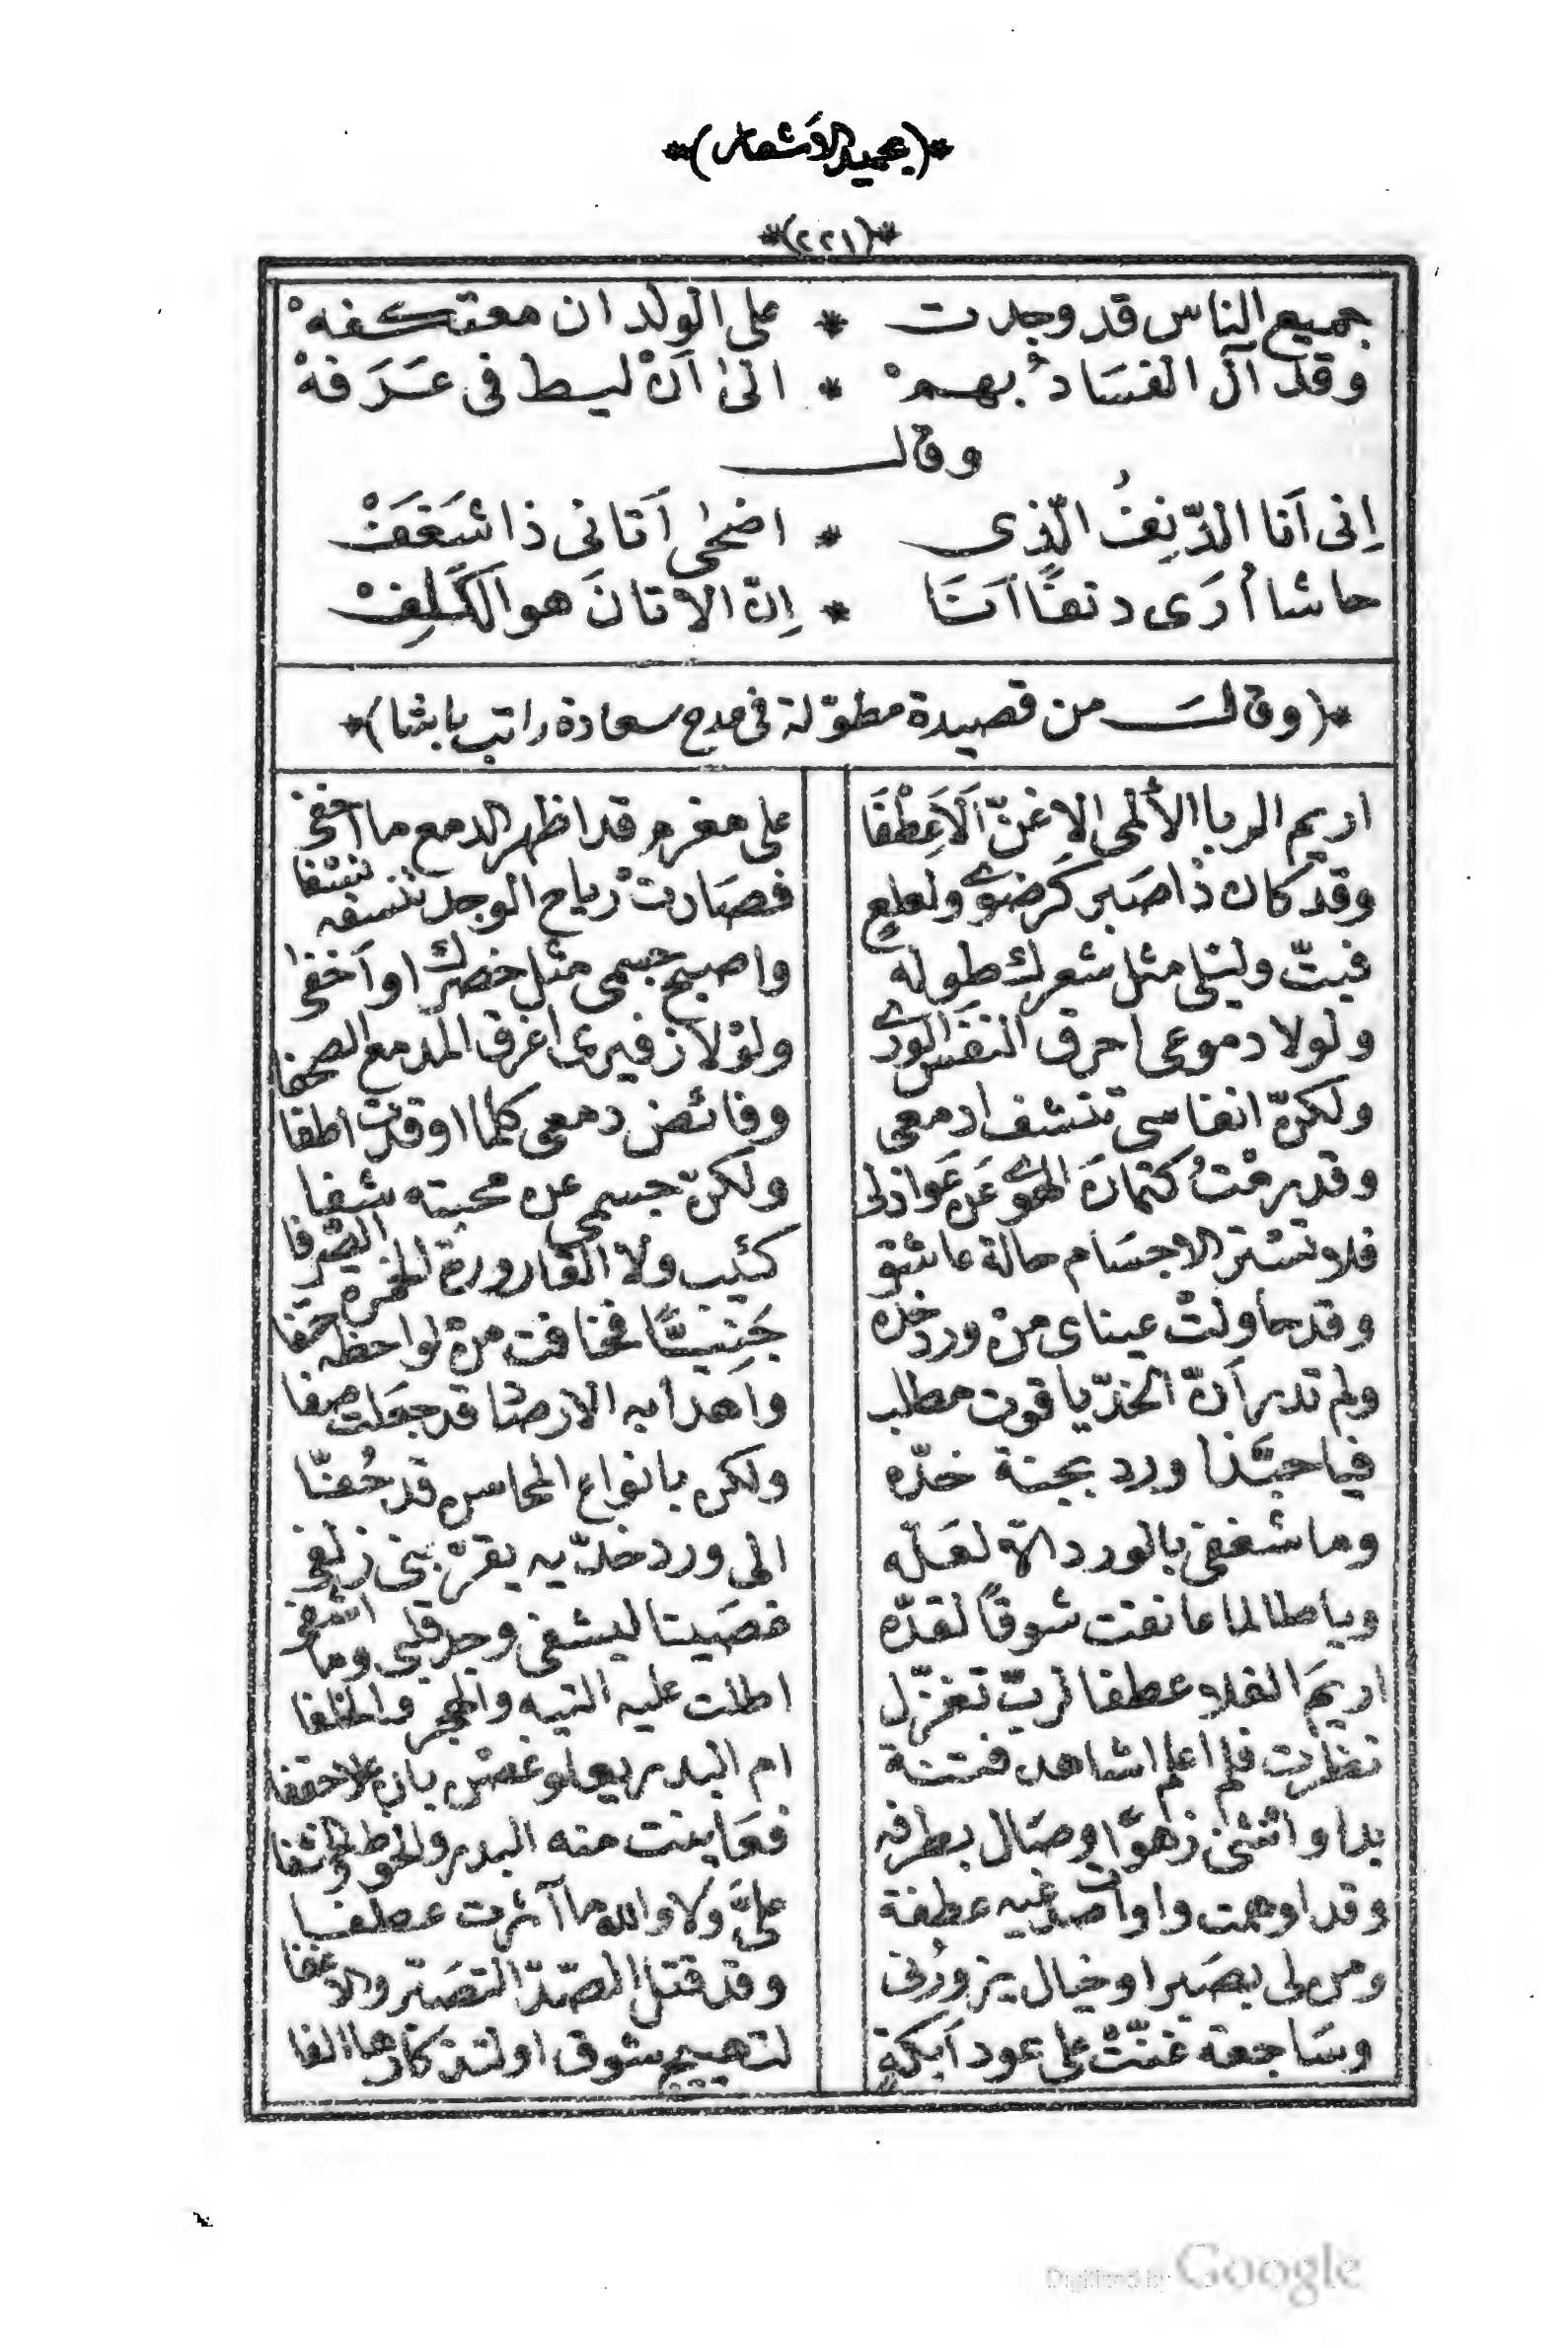 *(بجميد الأشعار)*
*(٢٢١)*
جميع الناس قد وجدت * على الولدان معتكفهْ
وقد آل الفسَادُ بهمْ * الىٰ اَنْ ليط فى عَرَفهْ
وقال
اِنى اَنا الدّنِفُ الّذى * اضحٰى اَتانى ذا شَغَفْ
حاشا أرَى دنفًا اَنَا * اِنّ الاتانَ هو الكَلِفْ
*(وقالَ من قصيدة مطوّلة فى مدح سعادة راتب باشا)*
اريم الربا الألمى الاغنّ اَلَاعَطْفَا على مغرم قد اظهر الدمع ما اخفى
وقد كان ذا صَبر كَرضوى ولعلعٍ فصَارتْ رياح الوجد تنسفه نسْفا
فبتّ وليْلى مثل شعرك طوله واصبح جسمى مثل خصرك او اَخفىٰ
ولولا دموعى احرق النفَس الورى ولوْلا زفيرى اغرق المدمع الصحفا
ولكنّ انفاسى تنشف ادمعى وفائض دمعى كلما اوقدت اطفا
وقد رمْتُ كتمانَ الهوى عَن عَواذلى ولكنّ جسمى عن محبته شفا
فلا تستر الاجسَام حالة عاشق كئيب ولا القارورة الخمرة الصّرفا
وقد حاولتْ عيناى منْ ورد خدّه جَنِيًّا فخافت منْ لواحظه حتفا
ولم تدر اَنّ الخدّ ياقوت مطلب واهدابه الارصَاد قد جعَلت صفا
فيا حبّذا ورد بجنة خدّه ولكن بانواع المحاسن قد حُفّا
وما شغفى بالورد الّا لعَلّه الى ورد خدّيه يقرّبنى زلفى
ويا طالما عانقت شوقًا لقدّه قضيبًا ليشفى وجد قلبى وما اشفى
اريمَ الفلا عطفا لربّ تغزّل اطلت عليه التيه والهجر والخلفا
نظرت فلم اعلم اشاهد فتنة ام البدر يعلو غصْن بان علا حقفا
بدا وانثنى زهوًا وصَال بطرفه فعَاينت منه البدر والخوط والخشفا
وقد اوهمت واوات صدغيه عطفة علىَّ ولا والله ما آثرت عطفا
ومن لى بصَبر او خيال يزورُنى وقد قتل الصّدّ التصَبّر والاغفا
وسَاجعة غنّتْ على عود اَيكةٍ لتهييج شوق او لتذكارها الفا
Digitized by Google